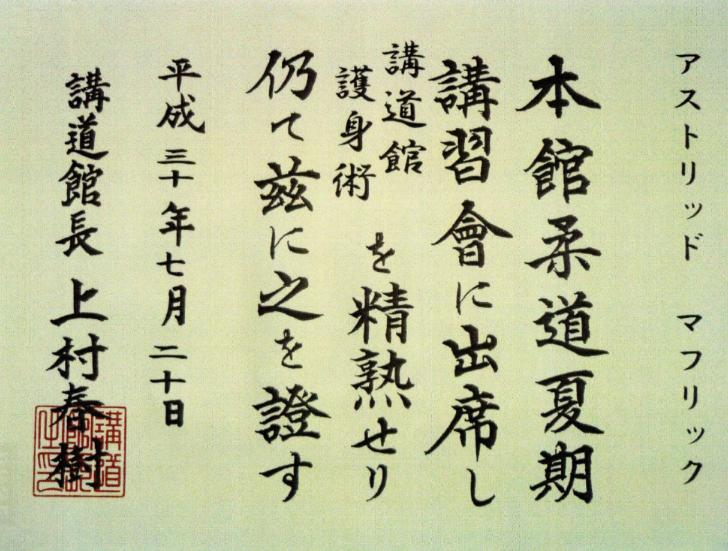 アストリッド マフリック
本館柔道夏期
講習會に出席し
講道館
護身術
を精熟せり
仍て茲に之を證す
平成三十年七月二十日
講道館長 上村春樹